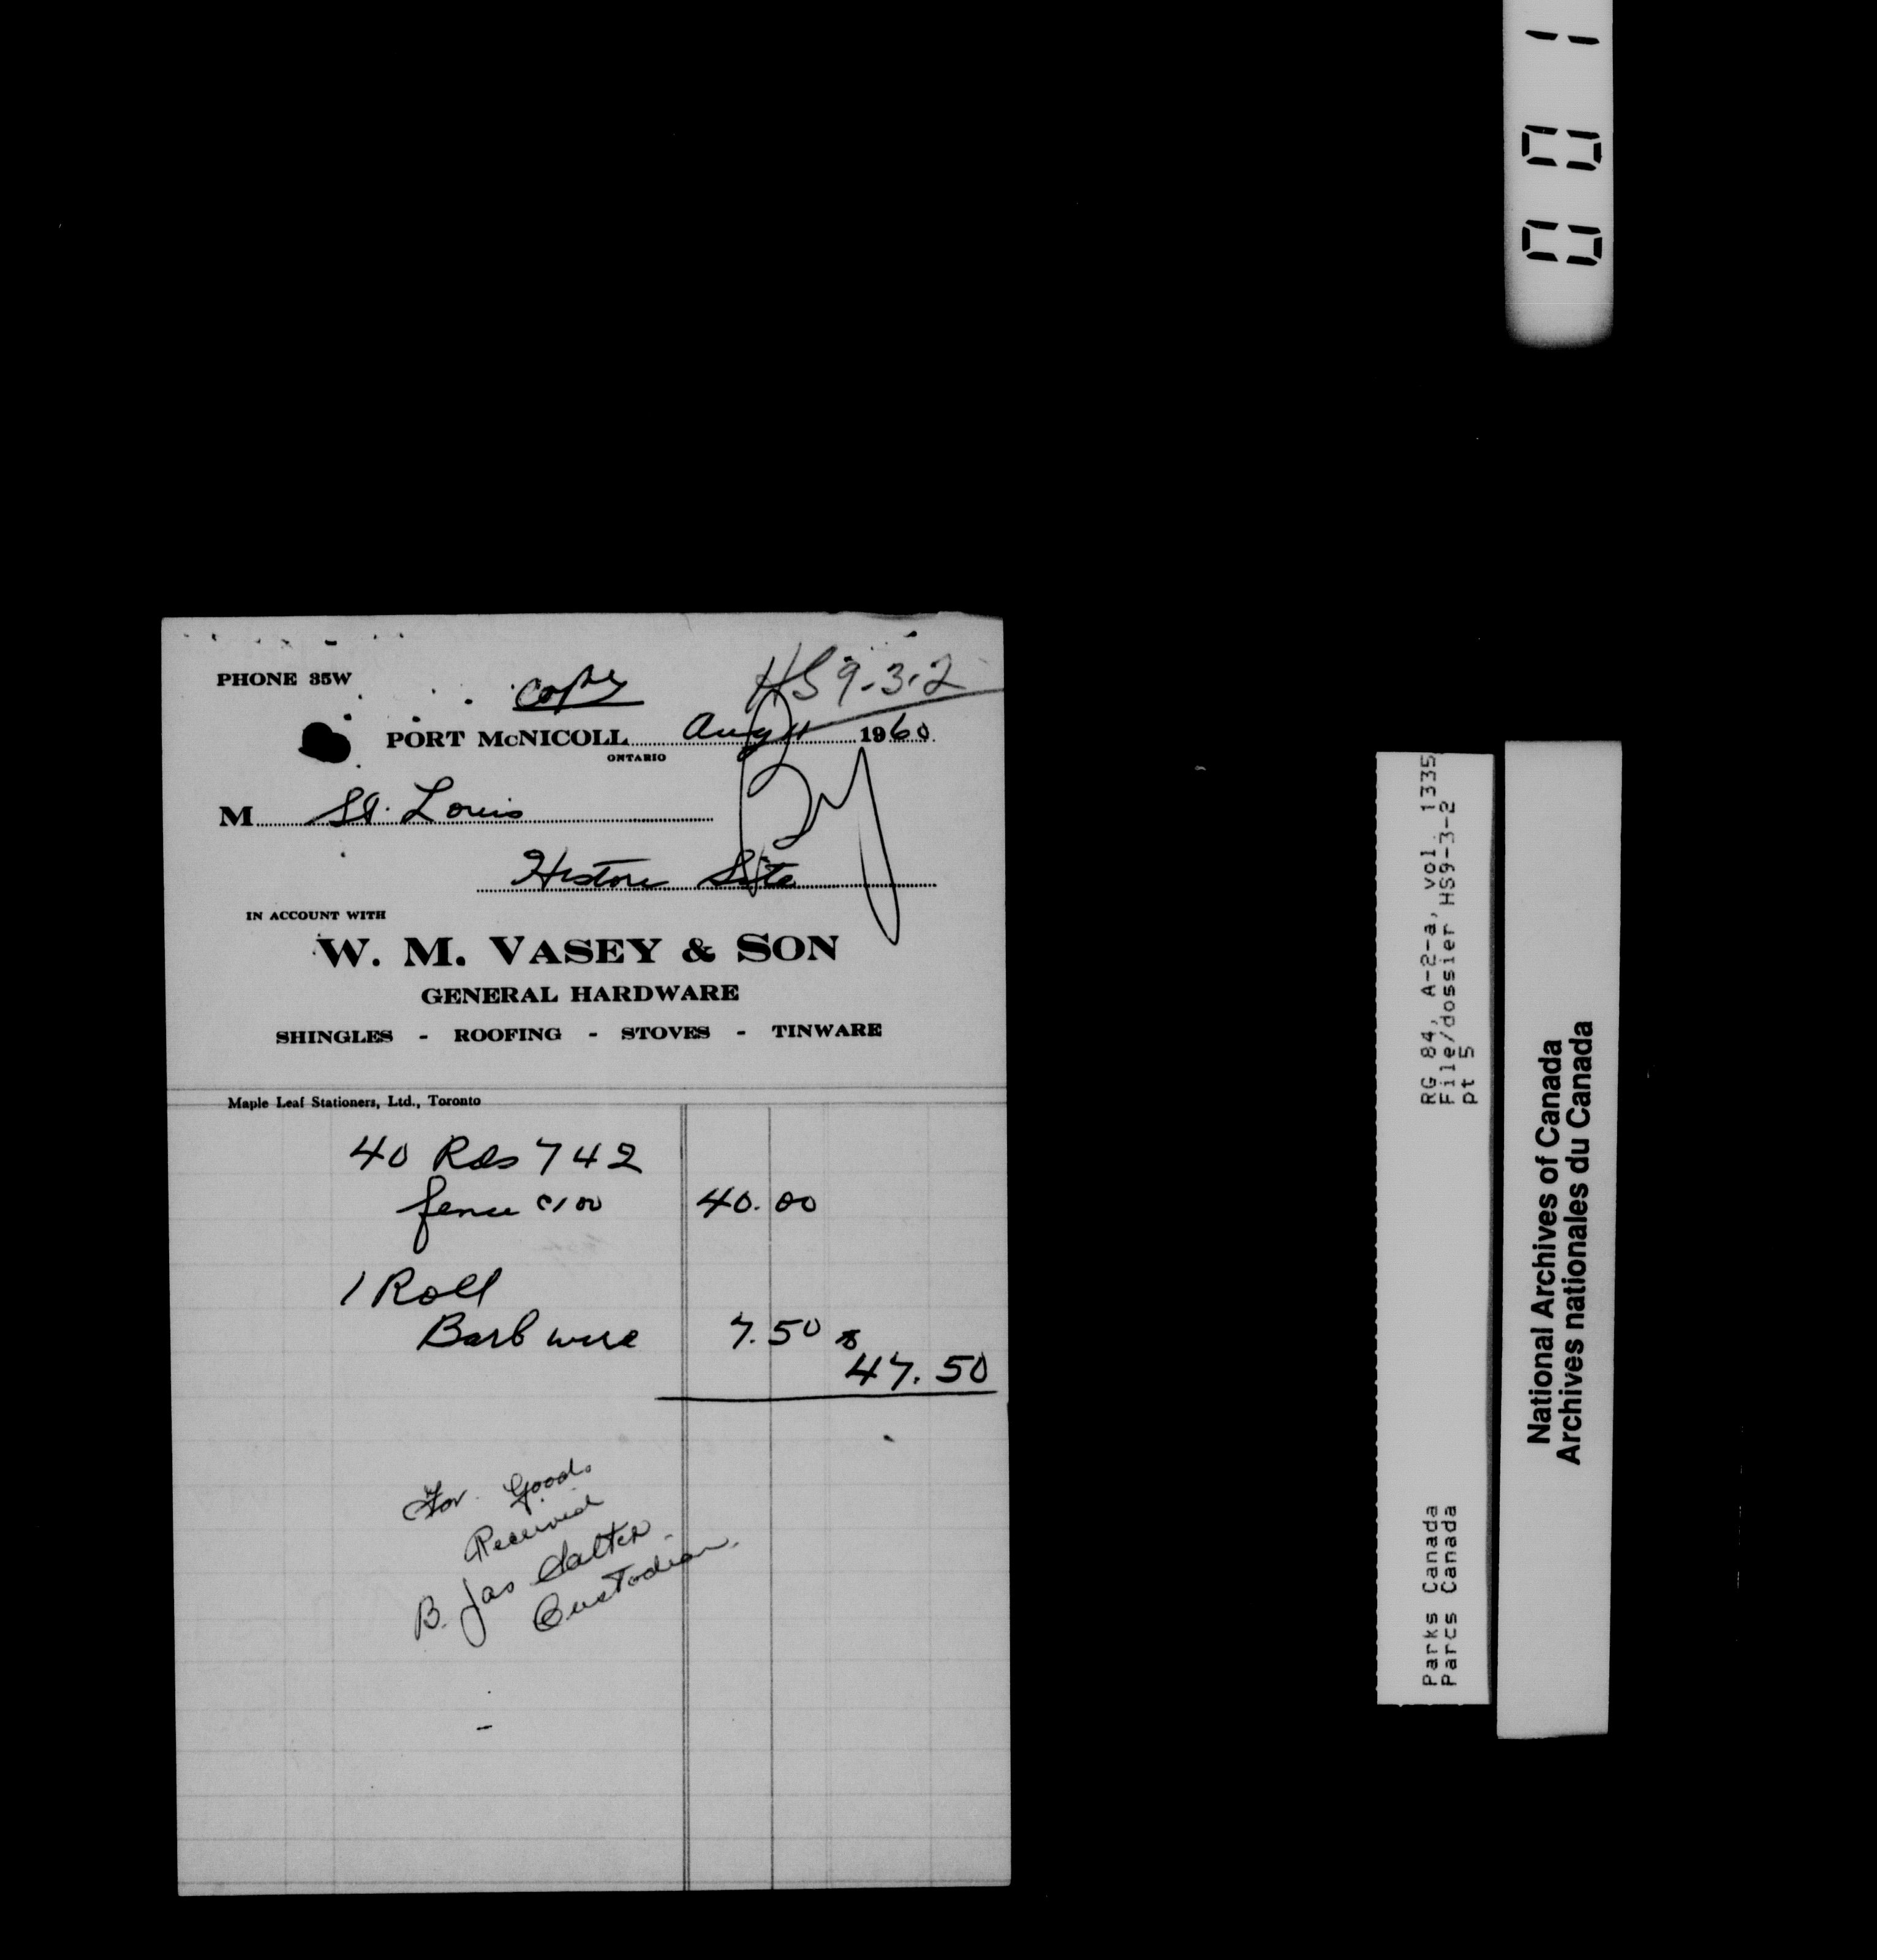 PHONE 35W
copy
HS 9-3-2
PORT McNICOLL Aug 11 1960
ONTARIO
M St. Louis
Historic Site
IN ACCOUNT WITH
W. M. VASEY & SON
GENERAL HARDWARE
SHINGLES - ROOFING - STOVES - TINWARE
Maple Leaf Stationers, Ltd., Toronto
40 Rds 742
fence @ 1 00 40.00
1 Roll
Barb wire 7.50
47.50
For Goods
Received
B. Jas Salter
Custodian.
001
RG 84, A-2-a, vol. 1335
File/dossier HS9-3-2
pt 5
Parks Canada
Parcs Canada
National Archives of Canada
Archives nationales du Canada